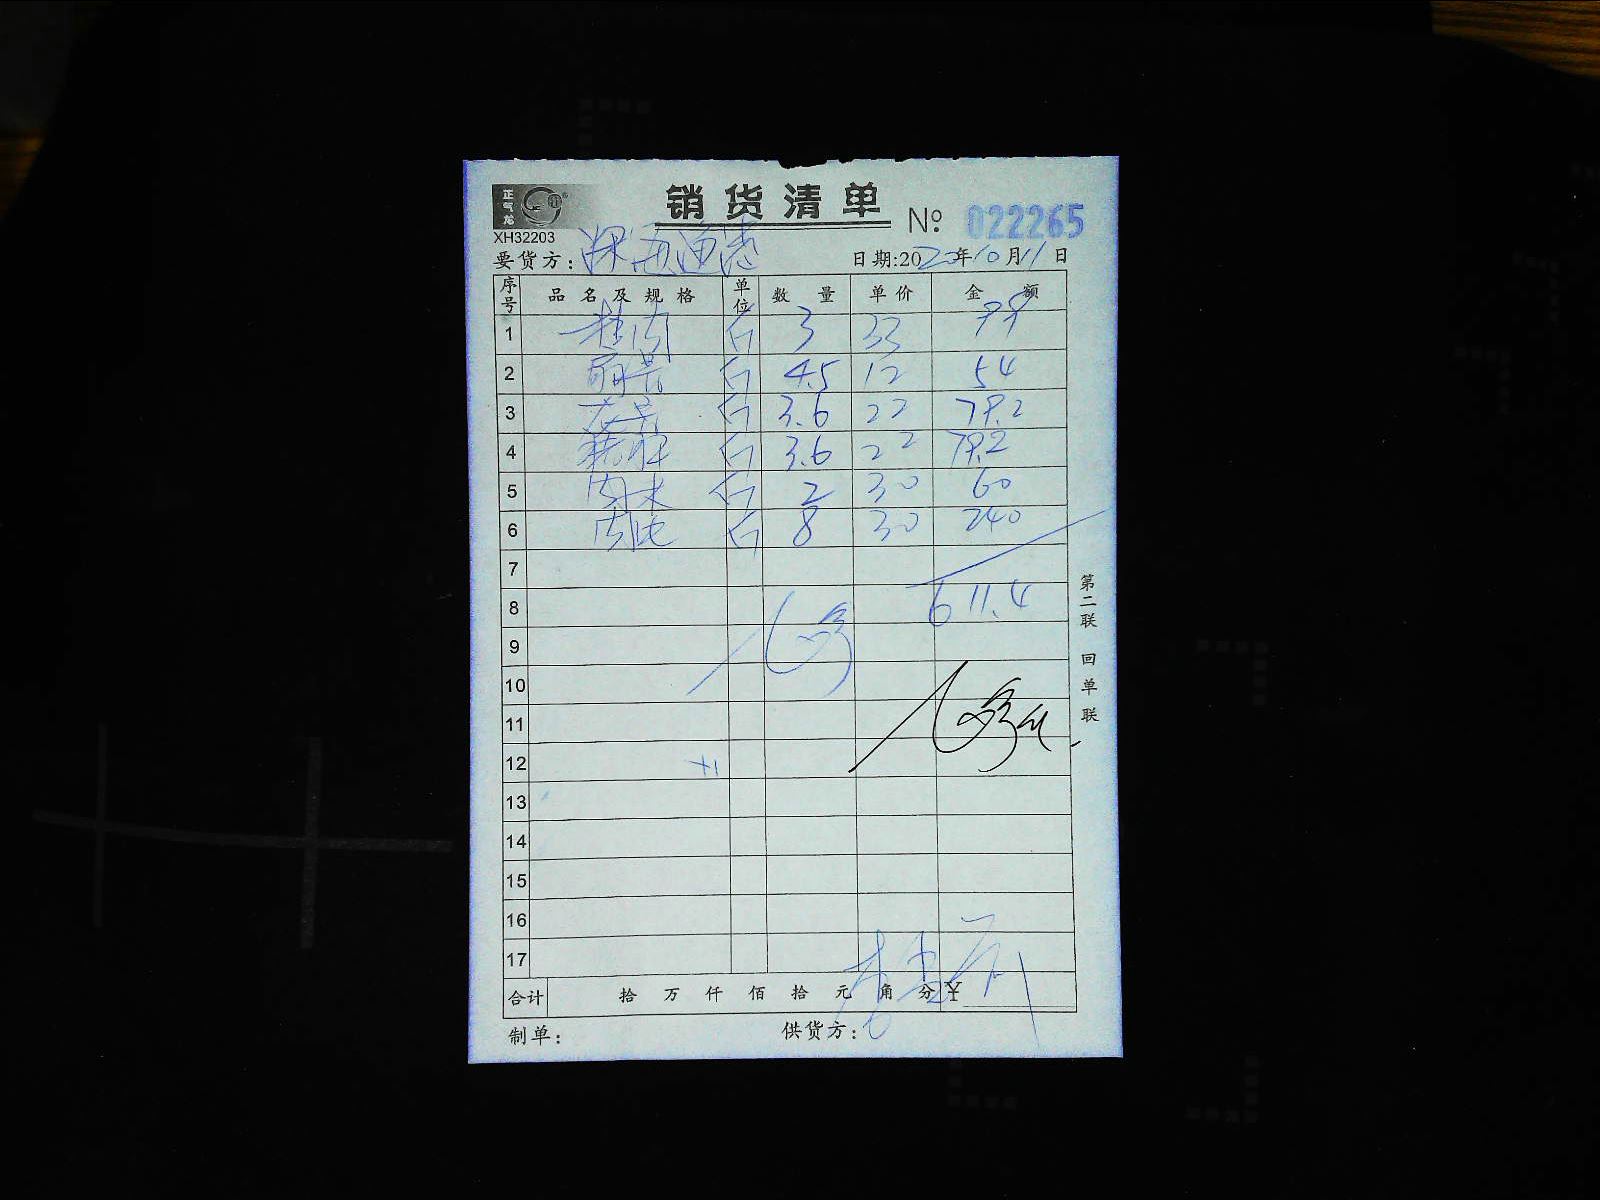 正气龙
销货清单
XH32203
№ 022265
要货方: 深海渔港
日期:2020年10月11日
序号 品名及规格 单位 数量 单价 金额
1 斤 3 33 99
2 斤 4.5 12 54
3 斤 3.6 22 79.2
4 斤 3.6 22 79.2
5 斤 2 30 60
6 斤 8 30 240
7
8 611.4
9
10
11
12
13
14
15
16
17
合计 拾万仟佰拾元角分 ¥
制单: 供货方:
第二联 回单联